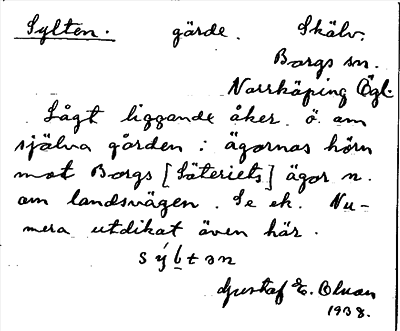 Sylten. gärde. Skälv.
Borgs sn.
Norrköping Ögl.
Lågt liggande åker ö. om
själva gården i ägornas hörn
mot Borgs [Säteriets] ägor n.
om landsvägen. Se ek. Nu-
mera utdikat även här.
sýltən
Gustaf E. Olson
1938.